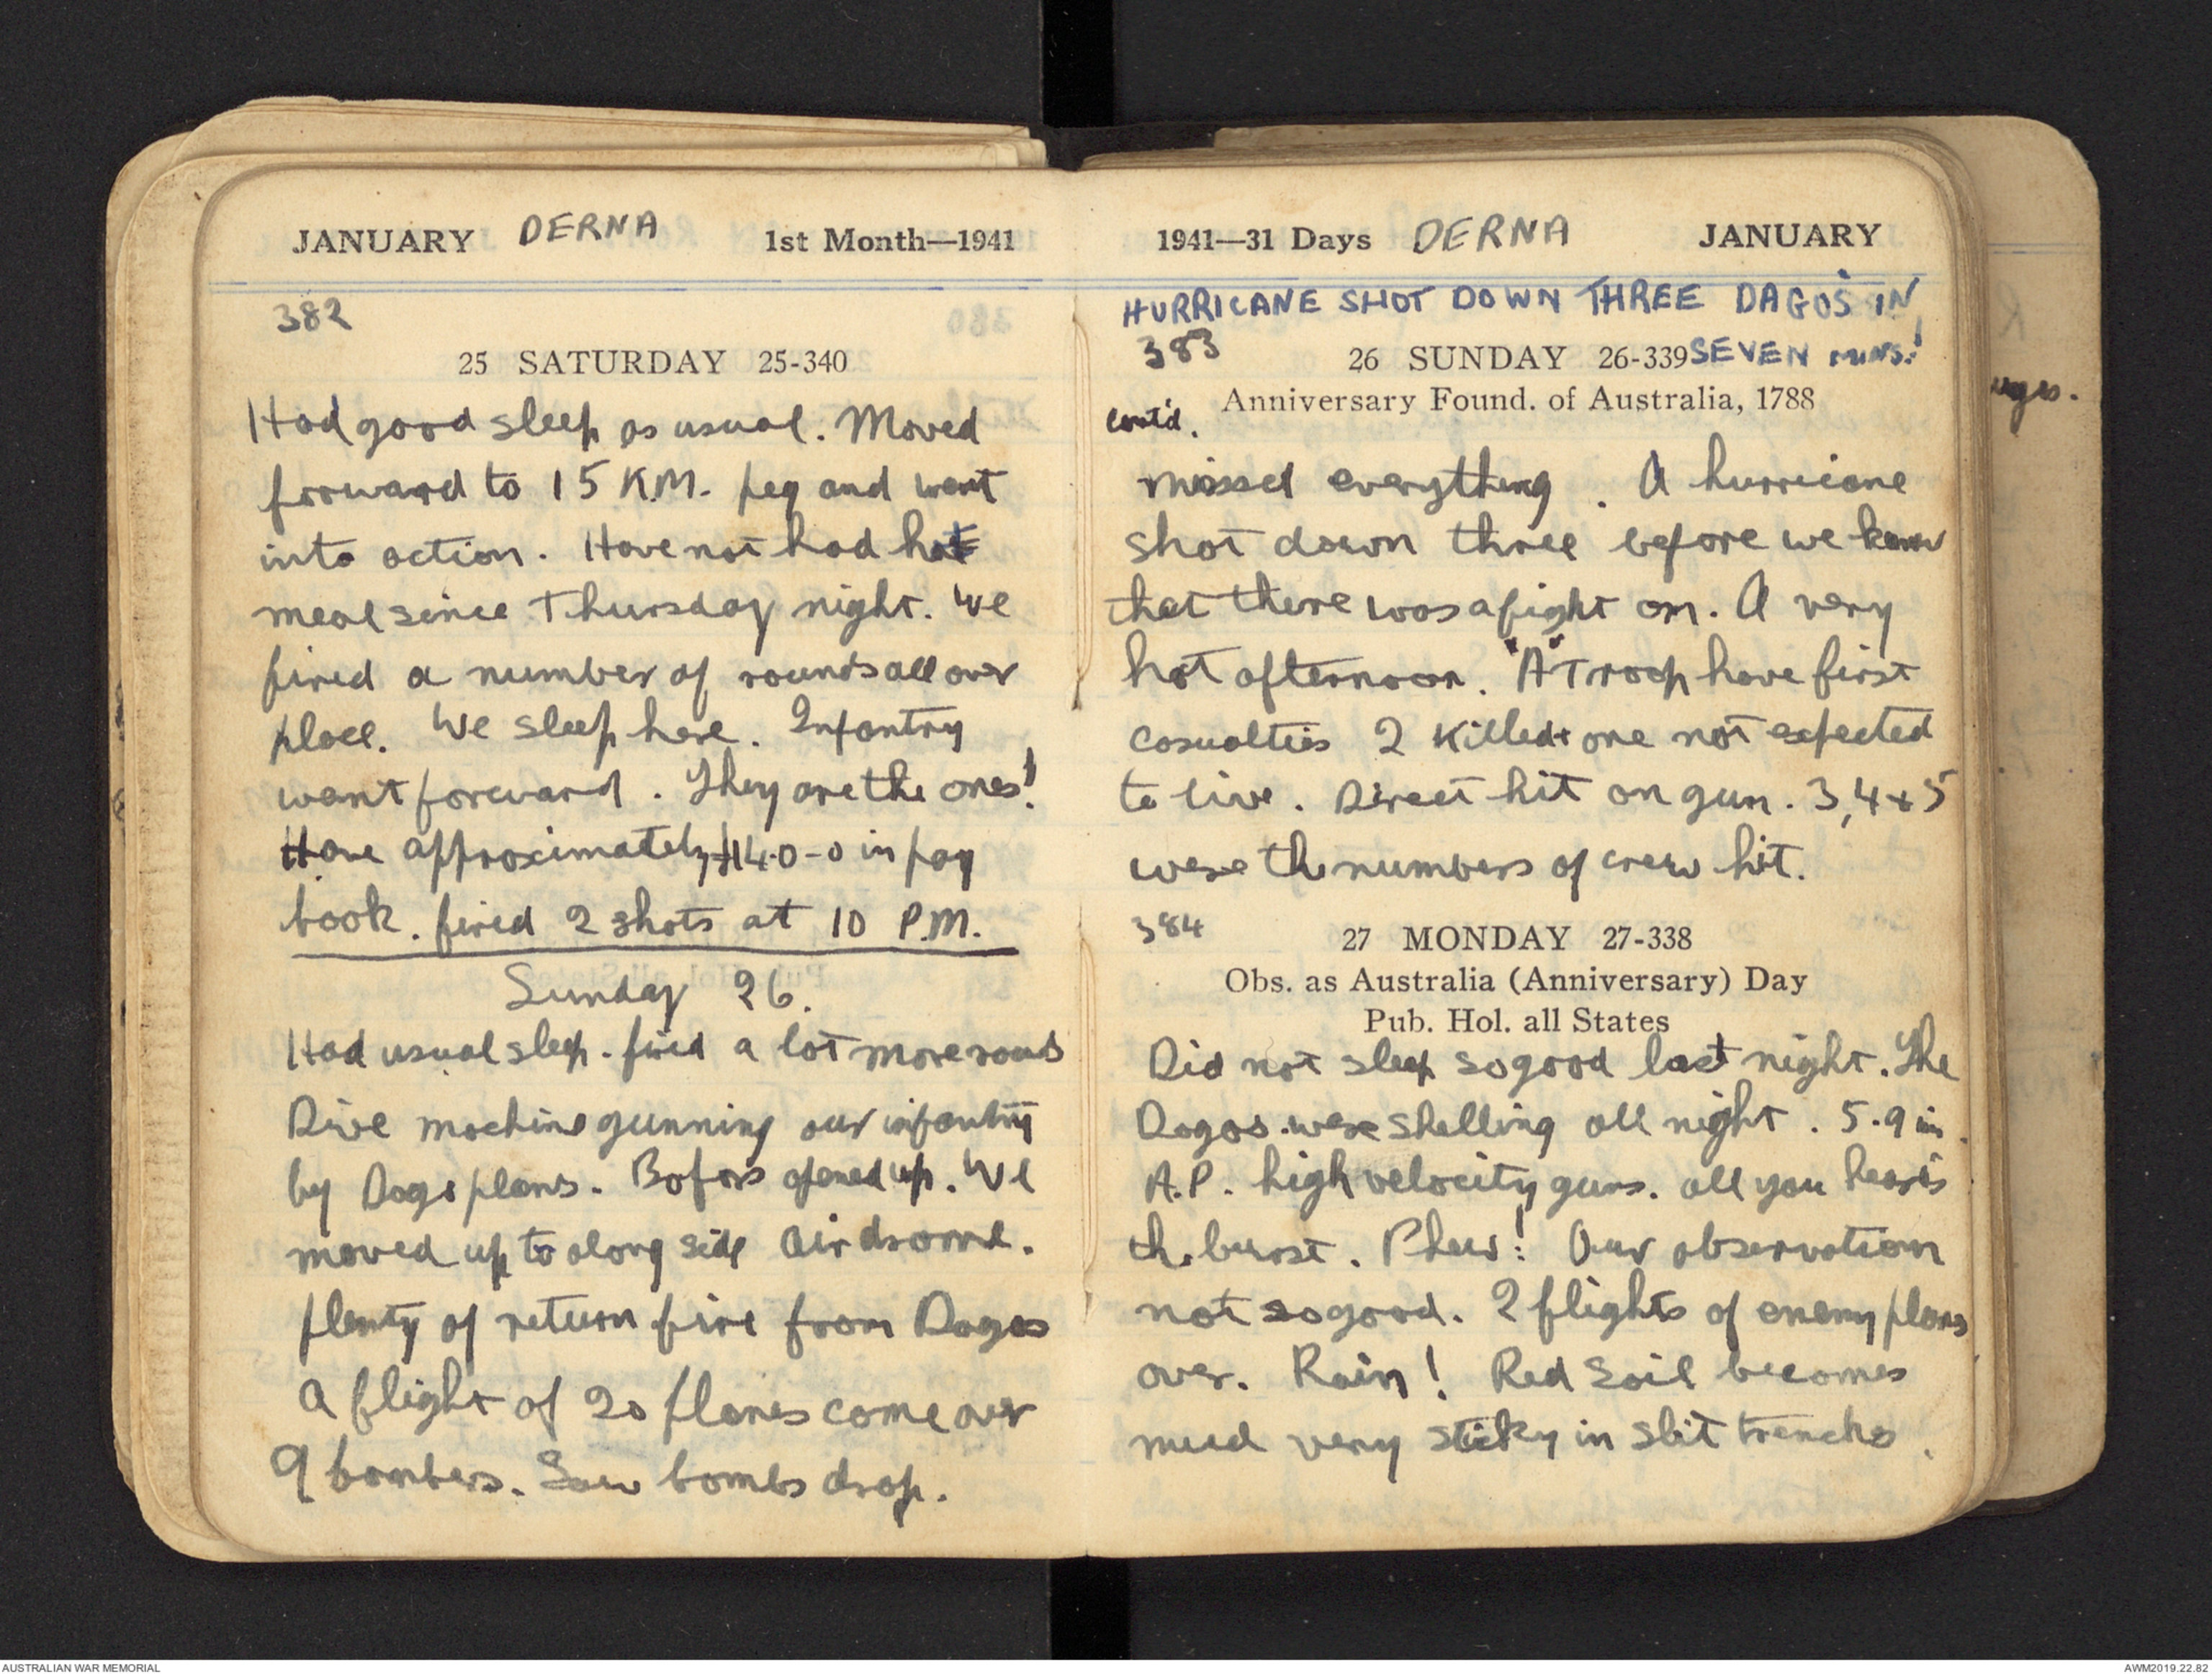 JANUARY DERNA 1st Month—1941
382
25 SATURDAY 25-340
Had good sleep as usual. Moved
forward to 15 K.M. peg and went
into action. Have not had hot
meal since Thursday night. We
fired a number of rounds all over
place. We sleep here. Infantry
want forward. They are the ones!
Have approximately £14-0-0 in pay
book. fired 2 shots at 10 P.M.
Sunday 26.
Had usual sleep. fired a lot more rounds
Dive machine gunning our infantry
by Dago planes. Bofors opened up. We
moved up to along side Airdrome.
plenty of return fire from Dagos
A flight of 20 planes come over
9 bombers. Saw bombs drop.
1941—31 Days DERNA JANUARY
HURRICANE SHOT DOWN THREE DAGO'S IN
383
26 SUNDAY 26-339 SEVEN MINS.!
Anniversary Found. of Australia, 1788
cont'd.
missed everything. A hurricane
shot down three before we knew
that there was a fight on. A very
hot afternoon. "A" Troop have first
casualties 2 killed + one not expected
to live. Direct hit on gun. 3, 4 + 5
were the numbers of crew hit.
384
27 MONDAY 27-338
Obs. as Australia (Anniversary) Day
Pub. Hol. all States
Did not sleep so good last night. The
Dagos were shelling all night. 5.9 in.
A.P. high velocity guns. all you hear is
the burst. Phew! Our observation
not so good. 2 flights of enemy planes
over. Rain! Red soil becomes
mud very sticky in slit trenches.
AUSTRALIAN WAR MEMORIAL
AWM2019.22.82